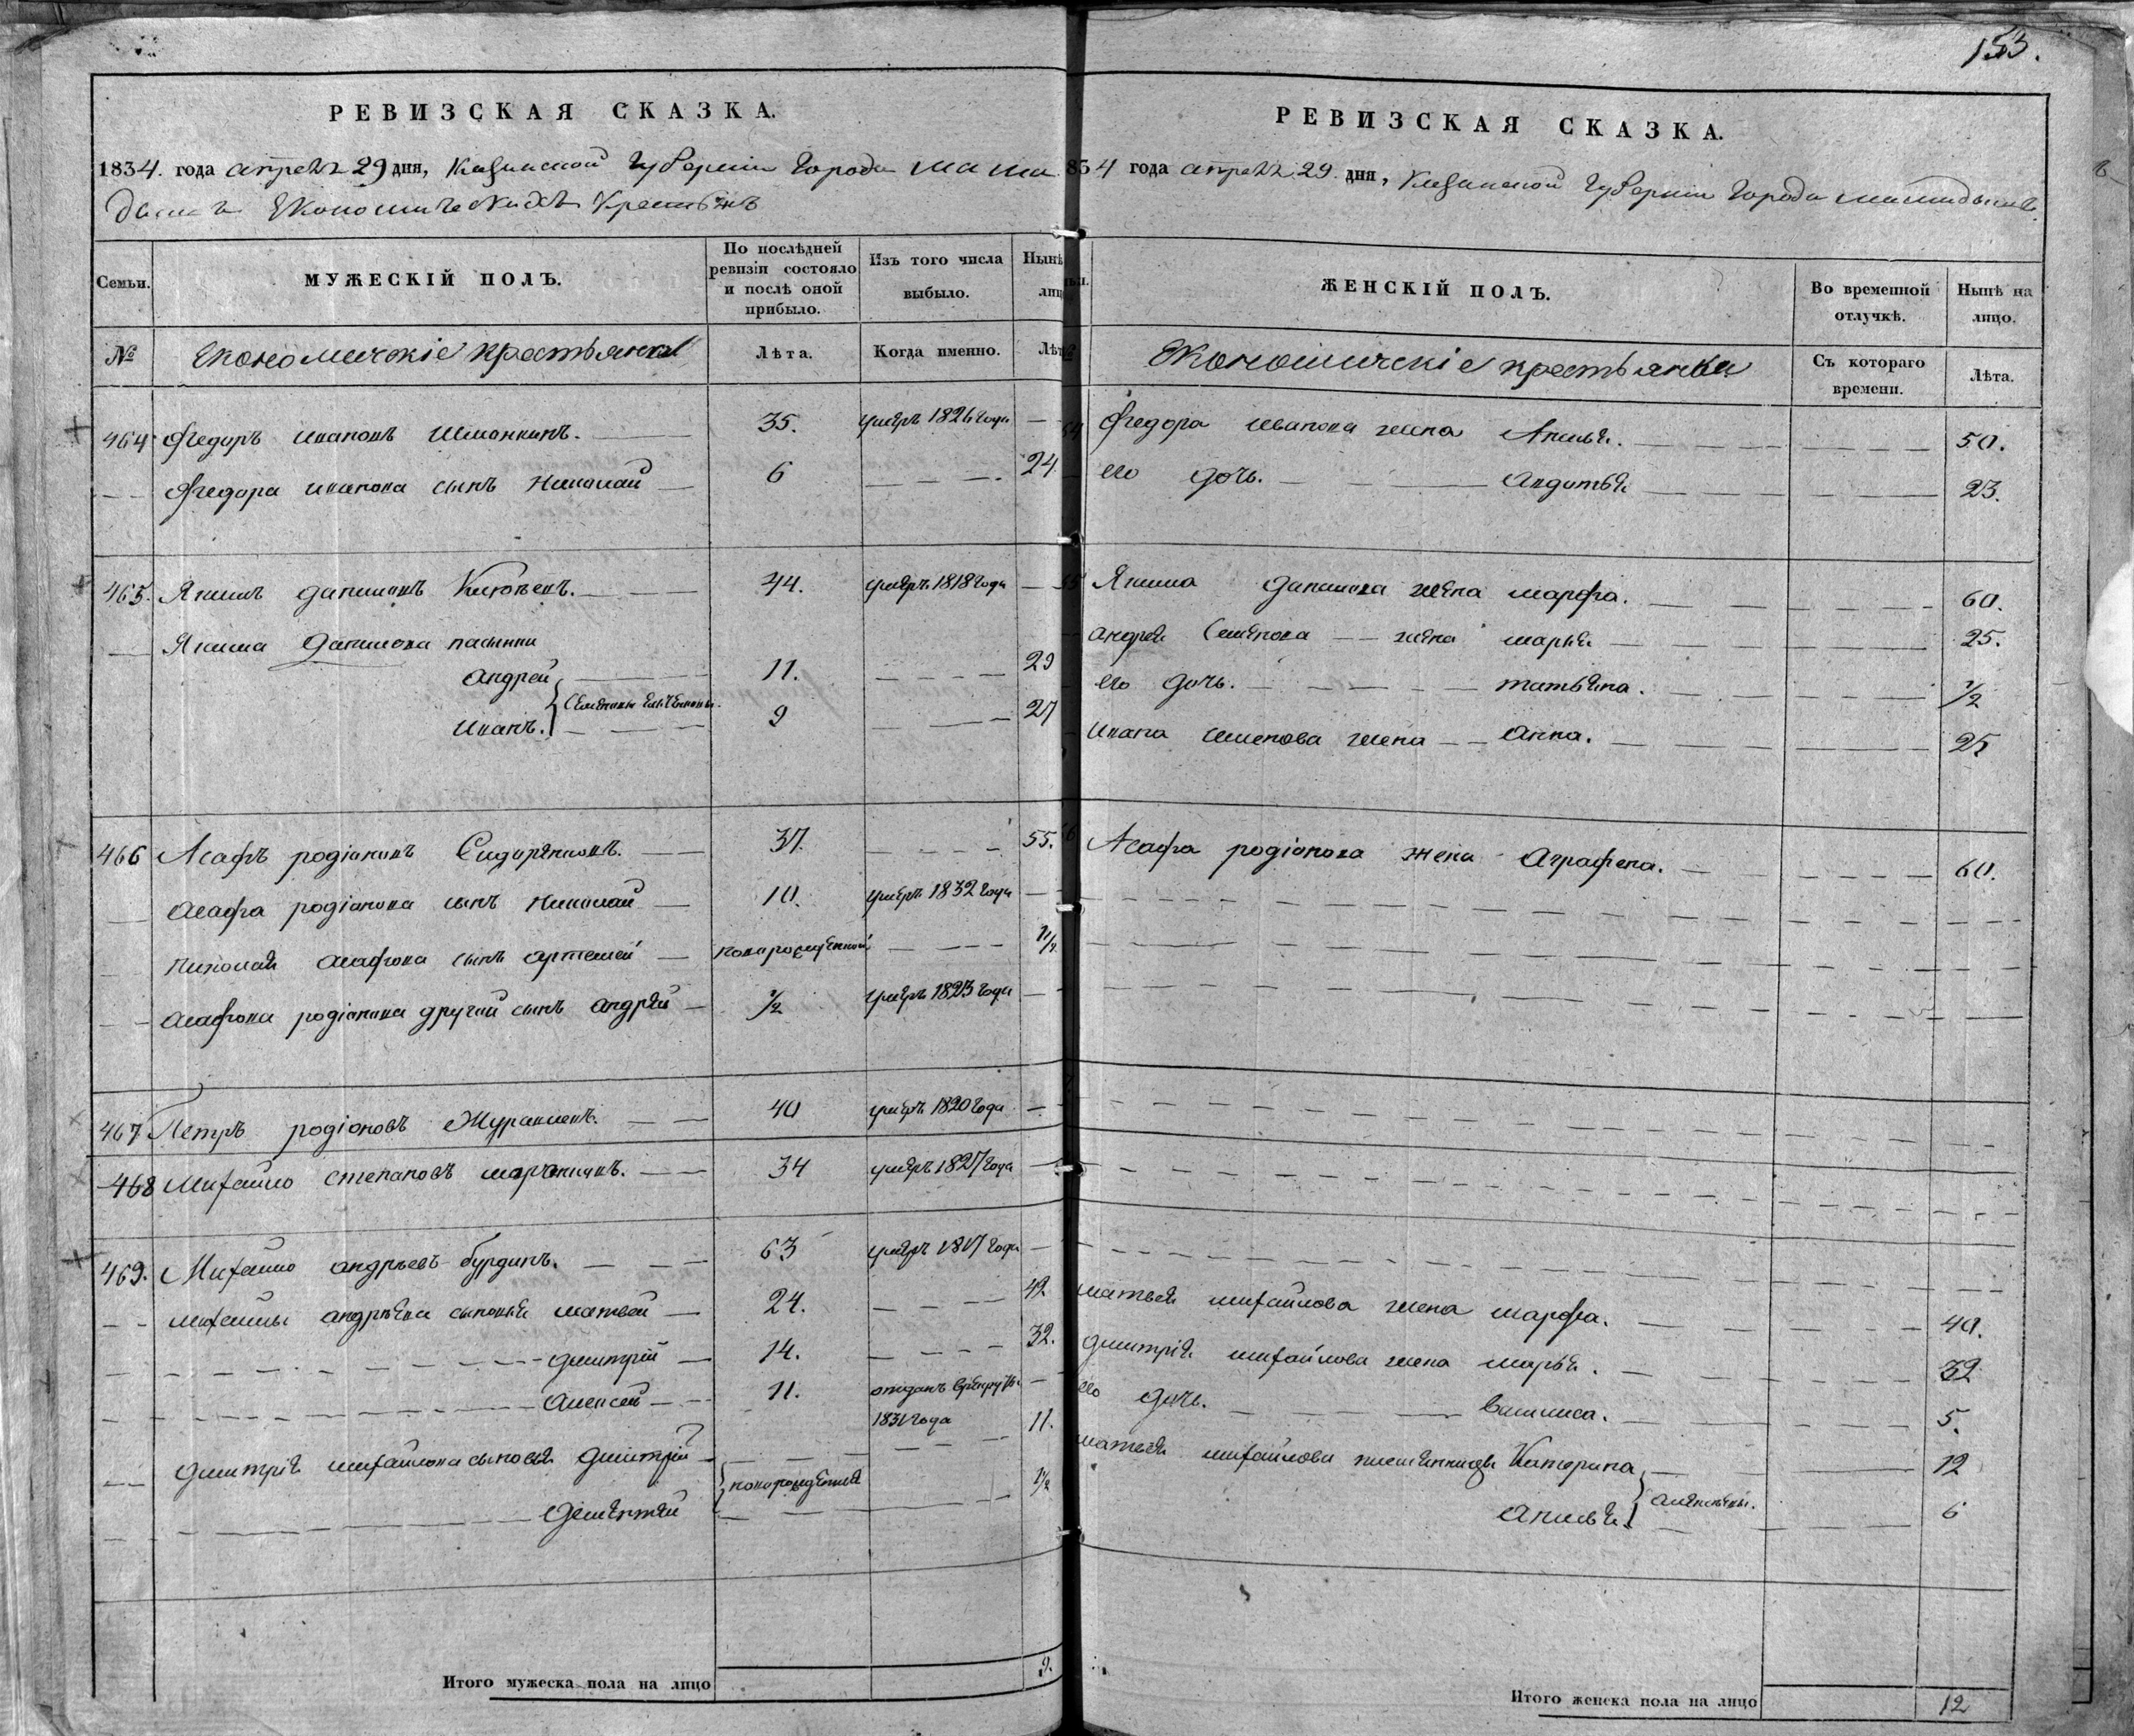 153.
РЕВИЗСКАЯ СКАЗКА.
1834. года апреля 29 дня, Казанской Губернiи города мама
дышъ Економическихъ Крестьянъ
Семьи.
МУЖЕСКIЙ ПОЛЪ.
По послѣдней ревизiи состояло и послѣ оной прибыло.
Изъ того числа выбыло.
Нынѣ
лиц
№
Економическiе крестьяна
Лѣта.
Когда именно.
Лѣт
464 Федоръ Ивановъ 35. умеръ 1826 года —
Федора иванова сынъ Николай — 6 — — — 24
465. Якимъ даниловъ 44. умеръ 1818 года —
Якима Данилова пасынки
Андрей 11. — — — 29
Семеновы
Иванъ. 9 — — 27
466 Асафъ родiоновъ 37. — — — 55.
Асафа родiонова сынъ Николай — 10. умеръ 1832 года —
Николая асафова сынъ артемей — новорожденной — — — 1 1/2
Асафова родiонова другой сынъ андрей — 1/2 умеръ 1823 года —
467 Петръ родiоновъ 40 умеръ 1820 года —
468 Михайло степановъ 34 умеръ 1827 года —
469. Михайло андреевъ бурдинъ. — — 63 умеръ 1817 года —
Михайлы андреева сыновья матвей — 24. — — — 42
дмитрiй — 14. — — — 32.
Алексей — 11. отданъ в рекруты —
1831 года
дмитрiя михайлова сыновья дмитрiй — — — 11.
новорожденные
дементей — — — 1 1/2
Итого мужеска пола на лицо 9.
РЕВИЗСКАЯ СКАЗКА.
834 года апреля 29. дня, Казанской Губернiи города мамадышъ
ЖЕНСКIЙ ПОЛЪ.
Во временной отлучкѣ.
Нынѣ на лицо.
№
Економическiе крестьянки
Съ котораго времени.
Лѣта.
Федора иванова жена Акилина. — — — 50.
его дочь. — — авдотья — — — 23.
Якима данилова жена марфа. — — — 60.
андрея Семенова — — жена марья — — — 25.
его дочь. — — — татьяна. — — — 1/2
Ивана семенова жена — — Анна. — — — 25
Асафа родiонова жена Аграфена. — — — 60.
матвея михайлова жена марфа. — — — 40.
дмитрiя михайлова жена марья. — — — 32
его дочь. — — василиса. — — — 5.
матвея михайлова племянницы Катерина — — 12
алексеевы.
6
Итого женска пола на лицо 12